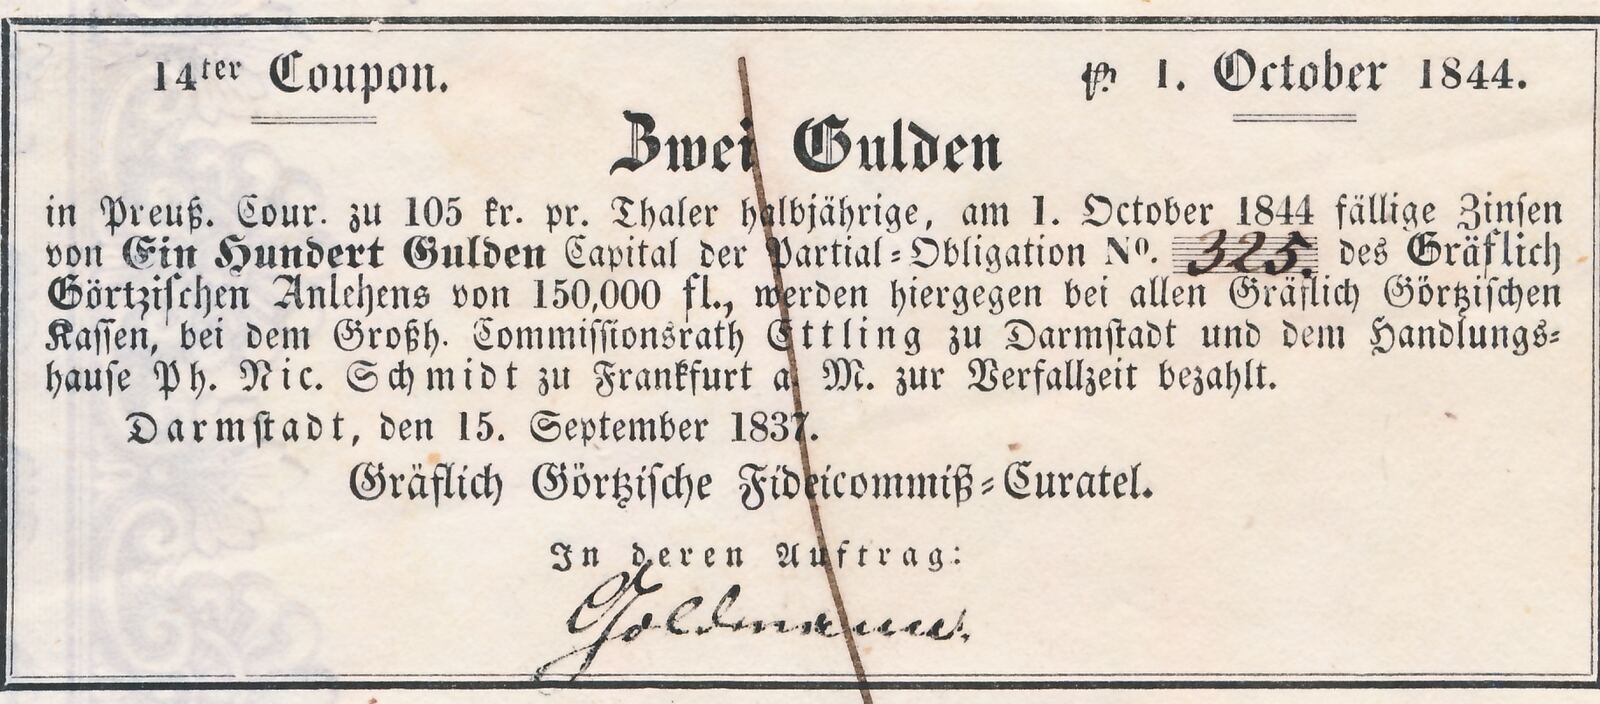 14ter Coupon.
pr. 1. October 1844.
Zwei Gulden
in Preuß. Cour. zu 105 kr. pr. Thaler halbjährige, am 1. October 1844 fällige Zinsen
von Ein Hundert Gulden Capital der Partial-Obligation No. 325. des Gräflich
Görtzischen Anlehens von 150,000 fl., werden hiergegen bei allen Gräflich Görtzischen
Kassen, bei dem Großh. Commissionsrath Ettling zu Darmstadt und dem Handlungs-
hause Ph. Nic. Schmidt zu Frankfurt a. M. zur Verfallzeit bezahlt.
Darmstadt, den 15. September 1837.
Gräflich Görtzische Fideicommiß-Curatel.
In deren Auftrag:
Goldmann.